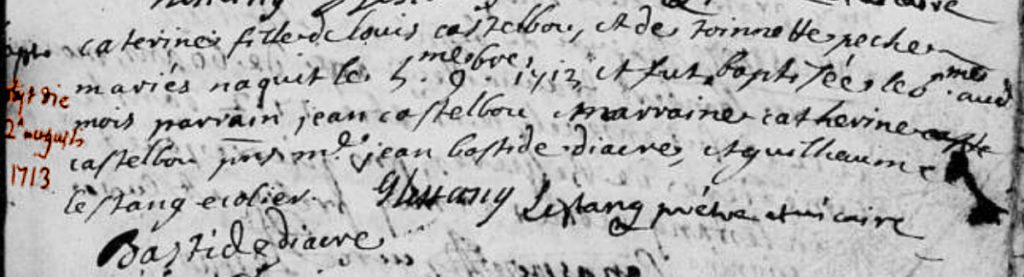 caterine fille de louis castelbou, et de toinnette peche
mariés naquit le 5. 9.mbre 1712 et fut baptisée le 6.me aud
mois parrain jean castelbou marraine catherine
castelbou pns mr. jean bastide diacre, et guilhaume
lestang ecolier. Lestang prêtre et vicaire
Bastide diacre
2a augusti
1713